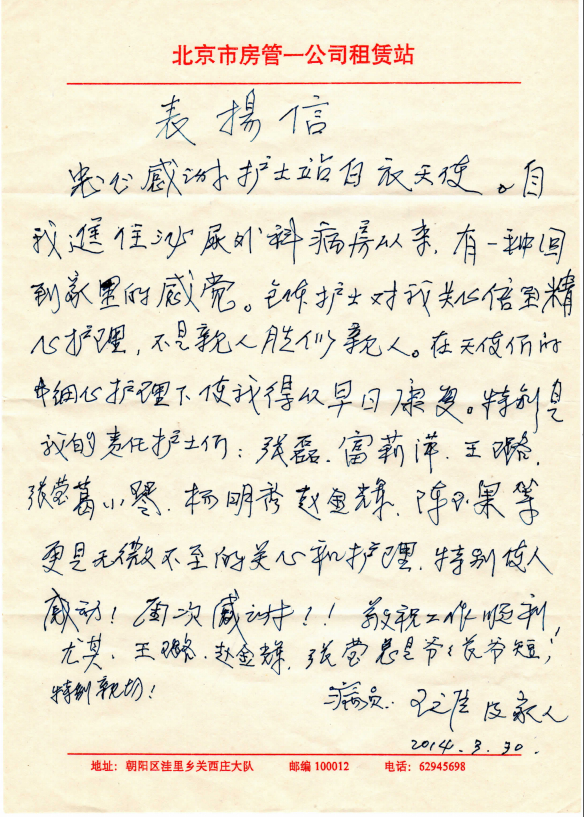 北京市房管一公司租赁站
表揚信
忠心感动护士站白衣天使。自
我進住泌尿外科病房以来,有一种回
到家里的感觉。全体护士对我关心倍至精
心护理,不是親人胜似親人。在天使们的
细心护理下使我得以早日康复。特别是
我的责任护士们:张磊.富莉萍.王璐.
张莹葛小琴.杨明秀赵金辉.陈玉果等
更是无微不至的关心和护理.特别使人
感动!再次感谢!!敬祝工作順利!
尤其、王璐.赵金辉.张莹总是爷々长爷短,
特别親切!
病员: 及家人
2014.3.30.
地址:朝阳区洼里乡关西庄大队 邮编 100012 电话:62945698